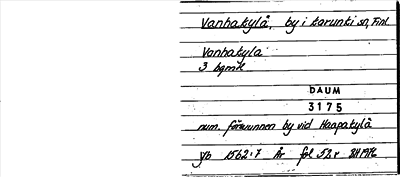 Vanhakylä, by i Karunki sn, Finl
Vanhakyla
3 bgmk
DAUM
3175
num. försvunnen by vid Haapakylä
yb 1562:7 År fol 52v BH1976